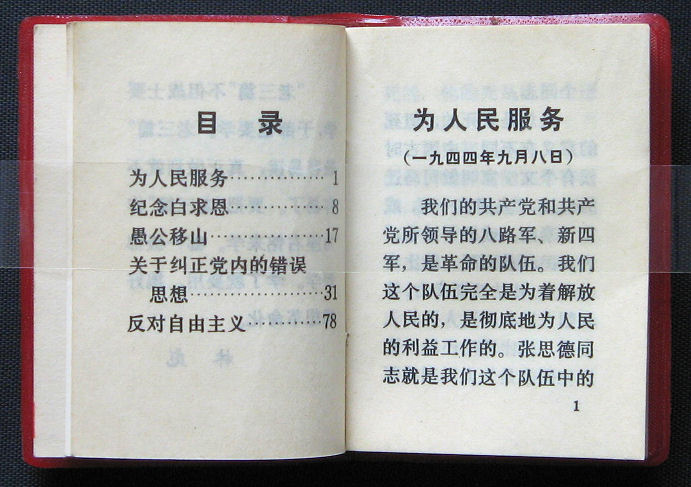 目 录
为人民服务……………1
纪念白求恩……………8
愚公移山………………17
关于纠正党内的错误
思想…………………31
反对自由主义…………78
为人民服务
(一九四四年九月八日)
我们的共产党和共产
党所领导的八路军、新四
军，是革命的队伍。我们
这个队伍完全是为着解放
人民的，是彻底地为人民
的利益工作的。张思德同
志就是我们这个队伍中的
1